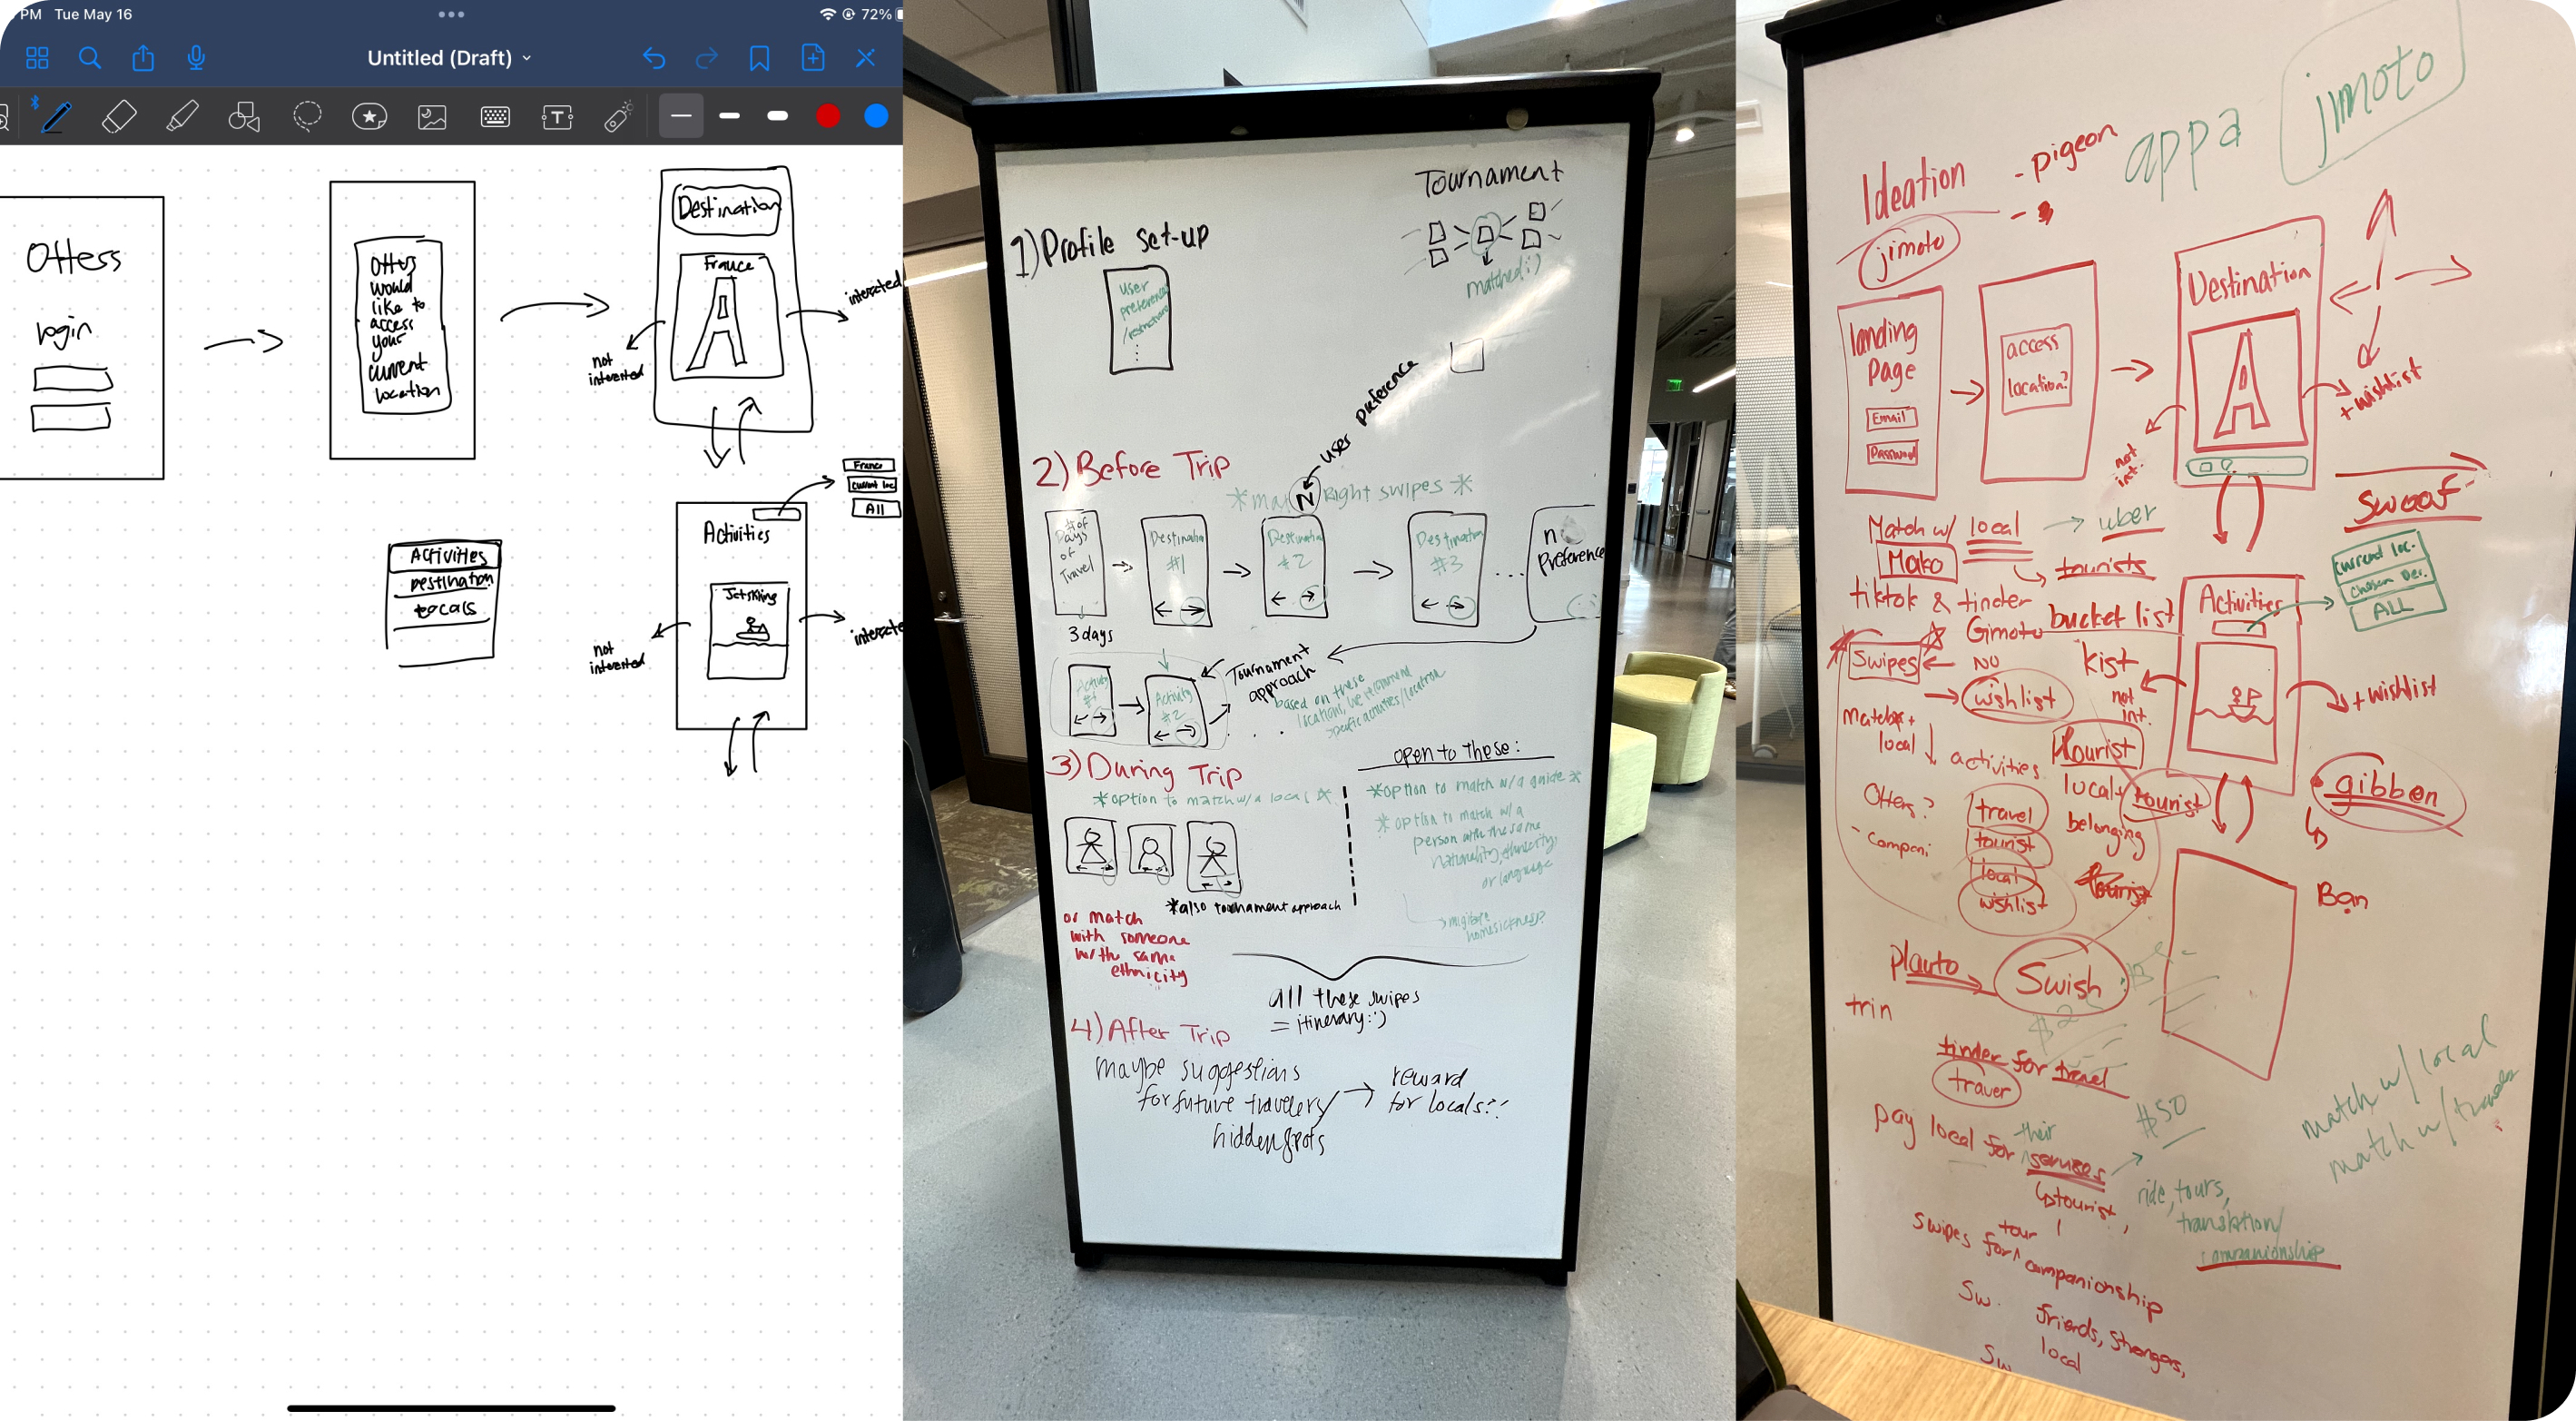 PM Tue May 16
72%
Untitled (Draft)
T
Ottess
login
would
like to
access
your
current
location
Destination
France
not
interested
Activities
France
current loc
All
Jetskiing
not
interested
Activities
Destination
Locals
Tournament
matched :)
1) Profile set-up
user
preference
user preference
2) Before Trip
Right swipes *
N
# of
Days
of
Travel
3 days
Destination
#1
Destination
#2
Destination
#3
...
no
preference
Activity
#1
Activity
#2
Tournament
approach
based on these
locations, we recommend
specific activities/location
3) During Trip
*option to match w/ a local *
*also tournament approach
or match
with someone
with same
ethnicity
open to these:
*option to match w/ a guide *
* option to match w/ a
person with the same
nationality, ethnicity,
or language
mitigate
homesickness?
all these swipes
= itinerary :')
4) After Trip
maybe suggestions
for future travelers/
hidden spots
reward
for locals??
Ideation
- pigeon
-
appa
jimoto
jimoto
landing
Page
Email
Password
access
location?
Destination
not
int.
+ wishlist
Match w/ local
uber
Mako
tourists
tiktok & tinder
bucket list
Gimoto
Swipes
NO
wishlist
kist
local
activities
tourist
local +
tourist
belonging
Otters?
- compani
travel
tourist
local
wishlist
Activities
current loc.
ALL
not
int.
+ wishlist
gibbon
Ban
plauto
Swish
trin
tinder for travel
traver
pay local for their
services
tourist,
$50
ride, tours,
translation/
companionship
Swipes for tour
companionship
Sw.
friends, strangers,
local
Sw
match w/ local
match w/